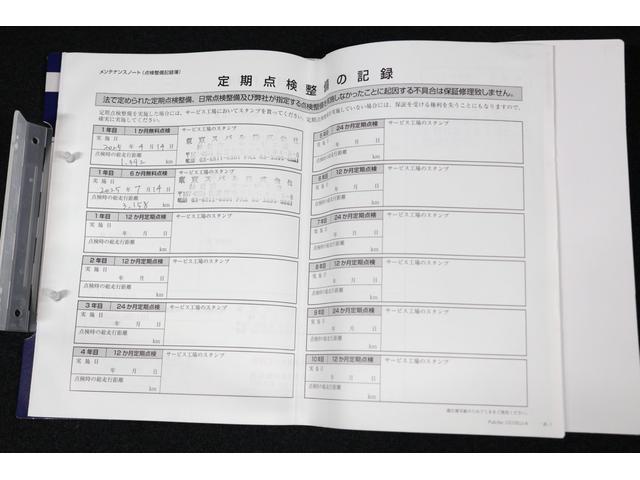 メンテナンスノート(点検整備記録簿)
定期点検整備の記録
法で定められた定期点検整備、日常点検整備及び弊社が指定する点検整備を実施しなかったことに起因する不具合は保証修理致しません。
1年目 1か月無料点検 サービス工場のスタンプ
実施日
2025年4月14日
点検時の総走行距離
km
1年目 6か月無料点検 サービス工場のスタンプ
実施日
2025年7月14日
点検時の総走行距離
3,158 km
1年目 12か月定期点検 サービス工場のスタンプ
実施日
年 月 日
点検時の総走行距離
km
2年目 12か月定期点検 サービス工場のスタンプ
実施日
年 月 日
点検時の総走行距離
km
3年目 24か月定期点検 サービス工場のスタンプ
実施日
年 月 日
点検時の総走行距離
km
4年目 12か月定期点検 サービス工場のスタンプ
実施日
年 月 日
点検時の総走行距離
km
5年目 24か月定期点検 サービス工場のスタンプ
実施日
年 月 日
点検時の総走行距離
km
6年目 12か月定期点検 サービス工場のスタンプ
実施日
年 月 日
点検時の総走行距離
km
7年目 24か月定期点検 サービス工場のスタンプ
実施日
年 月 日
点検時の総走行距離
km
8年目 12か月定期点検 サービス工場のスタンプ
実施日
年 月 日
点検時の総走行距離
km
9年目 24か月定期点検 サービス工場のスタンプ
実施日
年 月 日
点検時の総走行距離
km
10年目 12か月定期点検 サービス工場のスタンプ
実施日
年 月 日
点検時の総走行距離
km